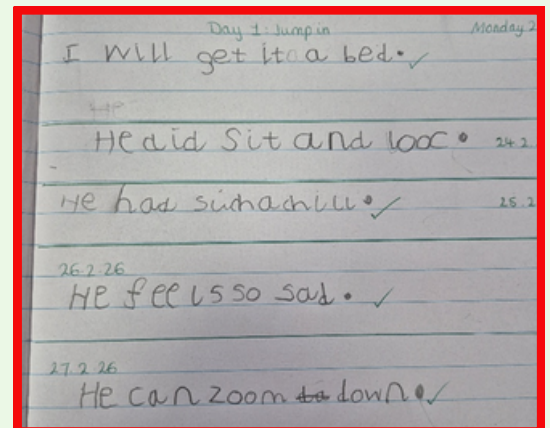 Day 1: Jump in Monday 2
I will get it a bed.
He
He did Sit and looc. 24.2
He had suchachill. 25.2
26.2.26
He feels so sad.
27.2.26
He can zoom to down.